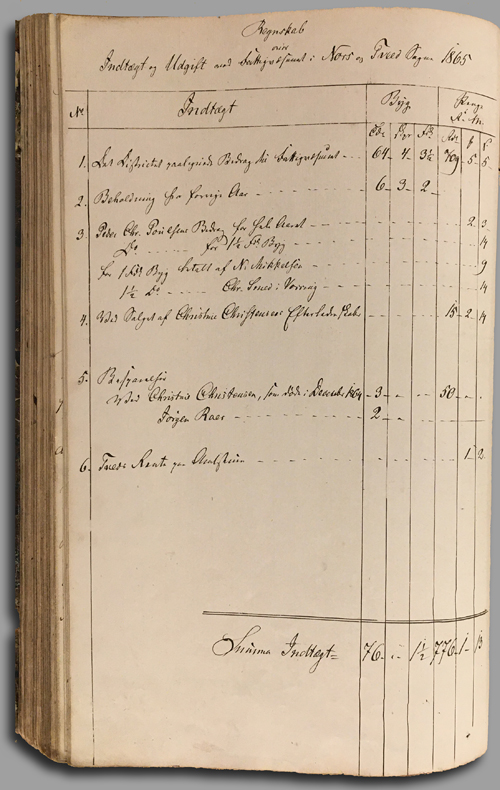 Regnskab
over
Indtægt og Udgift med Fattigvæsenet i Nors og Tved Sogne 1865
No Indtægt Byg Penge
Tdr Skp Fdr Rdl
1. Det Districtet paalignede Bidrag til Fattigvæsenet 64 - 4 - 3½ 709 - 5 - 5
2. Beholdning fra forrige Aar 6 - 3 - 2
3. Peder Chr. Poulsens Bidrag for hele Aaret 2 3
Do for 1½ Fdr Byg 14
for 1 Fdr Byg betalt af N. Mikkelsen 9
1½ Do Chr. Smed i 14
4. Ved Salget af Christine Christensens Efterladenskaber 15 - 2 - 14
5. Besparelser
Ved Christine Christensen, som døde i December 1864 3 50
Jørgen Raer 2
6. Renter paa 1 2
Summa Indtægt = 76 - " - 1½ 776 - 1 - 13